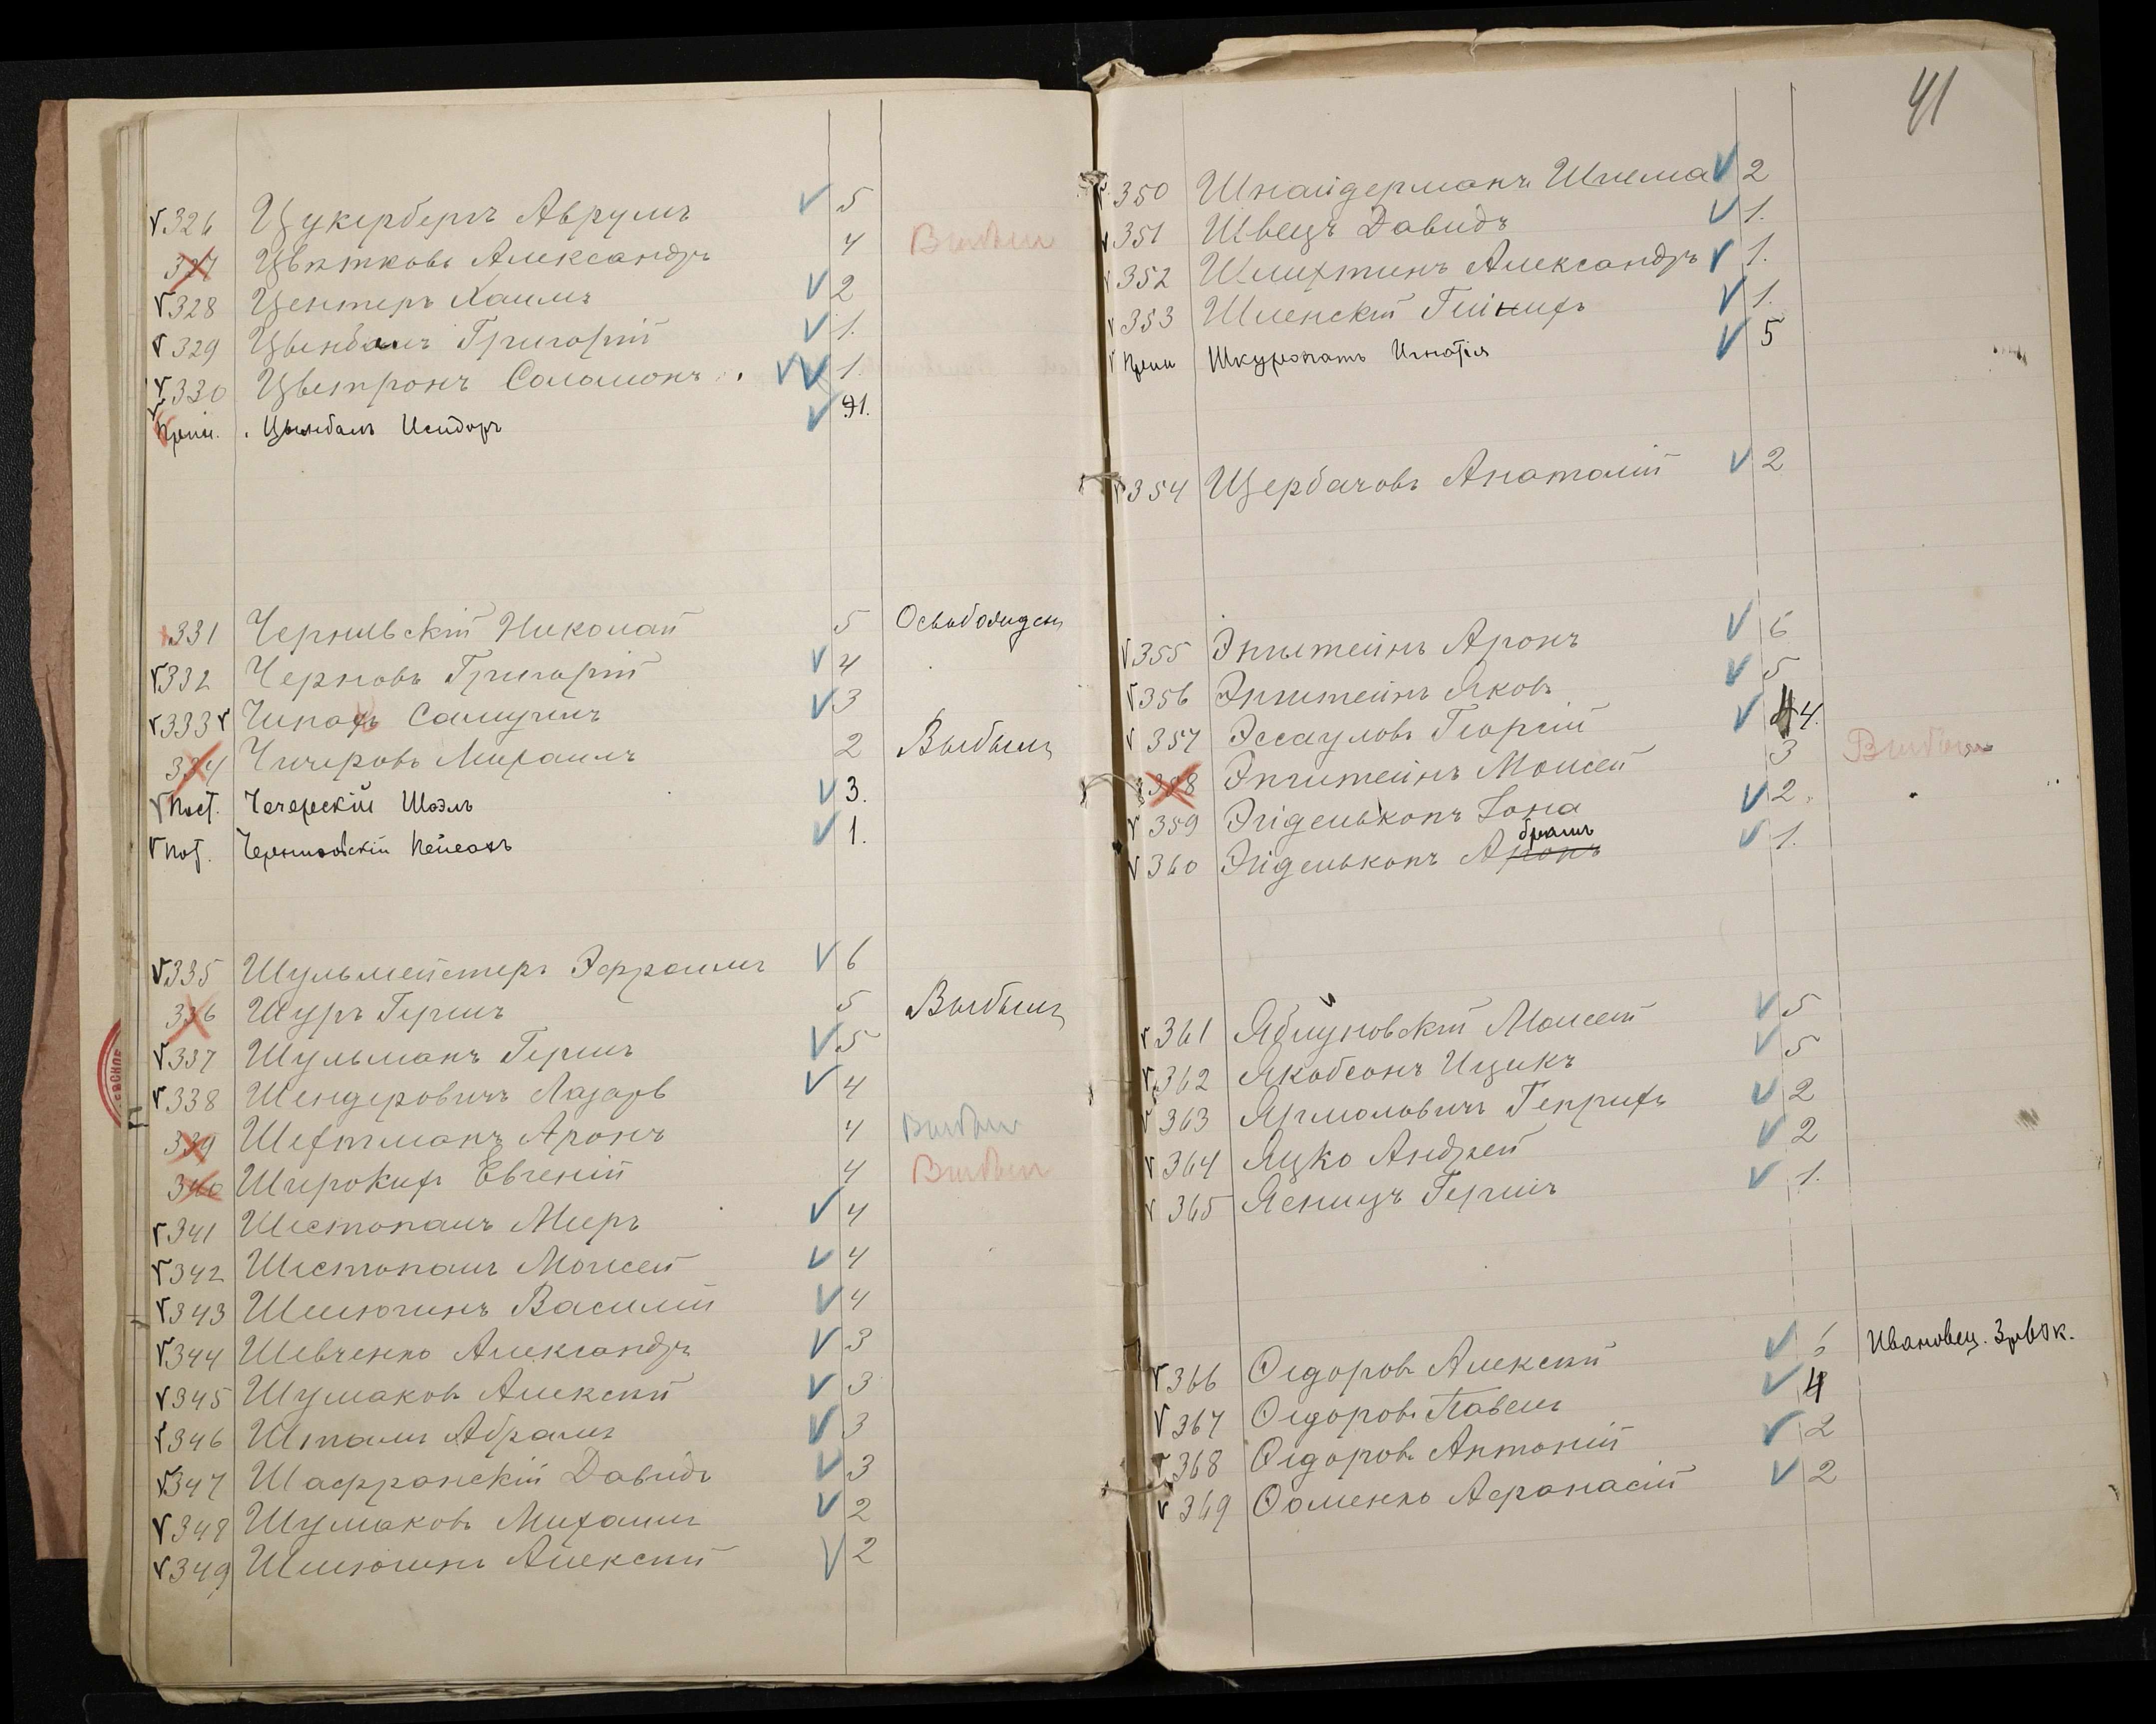 326 Цукербергъ Аврумъ 5
327 Цвѣтковъ Александръ 4 Выбылъ
328 Центеръ Хаимъ 2
329 Григорій 1.
330 Цветронъ Соломонъ 1.
Цымбалъ Исидоръ 1.
331 Николай 5 Освобожденъ
332 Черновъ Григорій 4
333 Самуилъ 3
334 Чичеровъ Михаилъ 2 Выбылъ
Чечерскій Шоэль 3.
Пейсахъ 1.
335 Шульмейстеръ Эфраимъ 6
336 Шуръ Гершъ 5 Выбылъ
337 Шульманъ Гершъ 5
338 Шендеровичъ Лазарь 4
339 Шехтманъ Аронъ 4 Выбылъ
340 Широкихъ Евгеній 4 Выбылъ
341 Шестопалъ Мееръ 4
342 Шестопалъ Моисей 4
343 Шелюгинъ Василій 4
344 Шевченко Александръ 3
345 Шумаковъ Алексѣй 3
346 Абрамъ 3
347 Шафранскій Давидъ 3
348 Шумаковъ Михаилъ 2
349 Шелюгинъ Алексѣй 2
41
350 Шнайдерманъ Шлема 2
351 Швецъ Давидъ 1.
352 Шлихтинъ Александръ 1.
353 Шленскій 1.
5
354 Щербачовъ Анатолій 2
355 Эпштейнъ Аронъ 6
356 Эпштейнъ Яковъ 5
357 Эссауловъ Георгій 4.
358 Эпштейнъ Моисей 3 Выбылъ
359 Эйделькопъ Іона 2
брамъ
360 Эйделькопъ Аронъ 1.
361 Яблуновскій Моисей 5
362 Якобсонъ Ицикъ 5
363 Ярмоловичъ Генрихъ 2
364 Яцко Андрей 2
365 Ясницъ Гершъ 1.
366 Ѳедоровъ Алексѣй 6
367 Ѳедоровъ Павелъ 4
368 Ѳедоровъ Антоній 2
369 Ѳоменко Афанасій 2